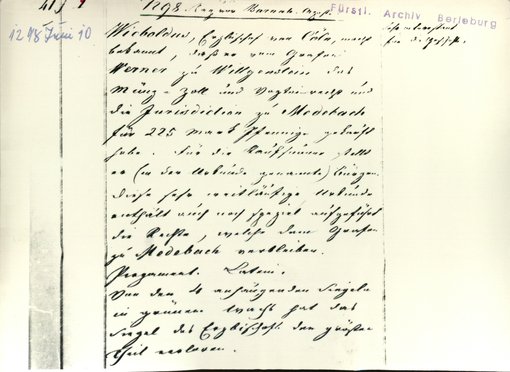 1298.
Fürstl. Archiv Berleburg
1298 Juni 10
Wiebaldus, Erzbischof von Cöln, macht
bekannt, daß er vom Grafen
Werner zu Wittgenstein das
Münz-Zoll und Vogteirecht und
die Jurisdiction zu Medebach
für 225 Mark Pfennige gekauft
habe. Für die Kaufsumme stellt
er (in der Urkunde genannte) Bürgen.
Diese sehr weitläufige Urkunde
enthält auch noch speziel aufgeführt
die Rechte, welche dem Grafen
zu Medebach verbleiben.
Pergament. Latein.
Von den 4 anhängenden Siegeln
in grünem Wachs hat das
Siegel des Erzbischofs den größten
Theil verloren.